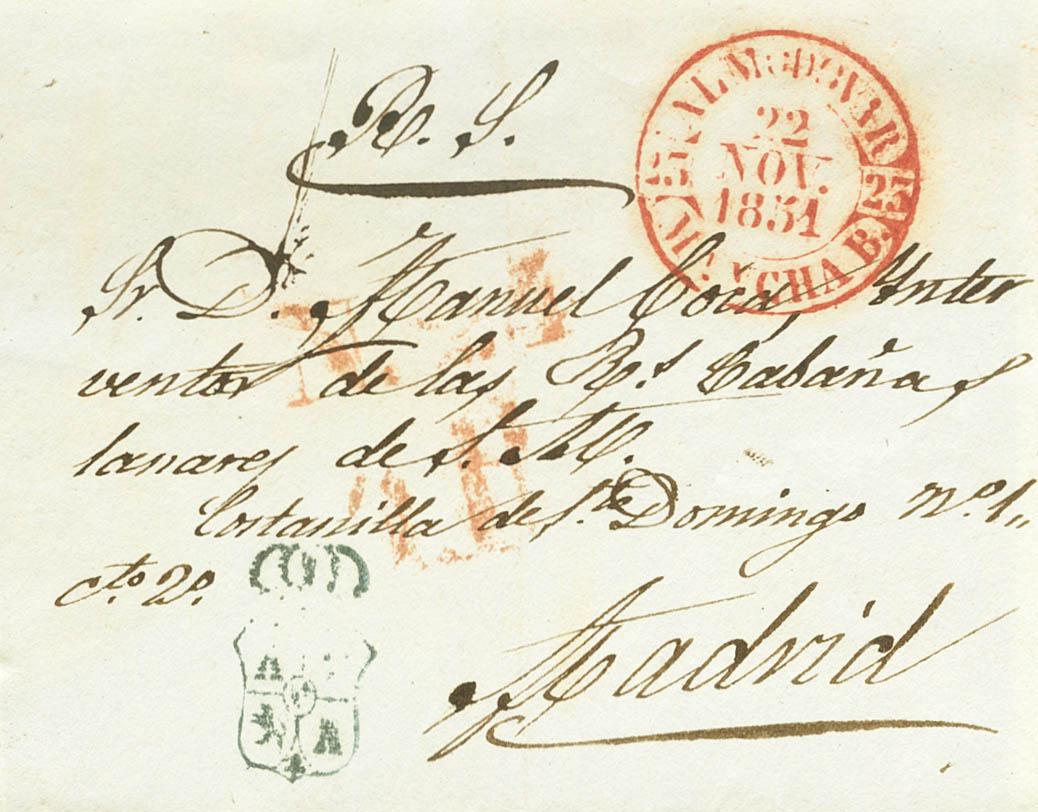 R. S.
ALMODOVAR
22
NOV.
1851
25 25
MANCHA B.
Sr. D. Manuel Coca, Inter
ventor de las Rs. Cabañas
lanares de S. M.
Costanilla de Sto. Domingo nº. 1,,
cto. 2º.
Madrid